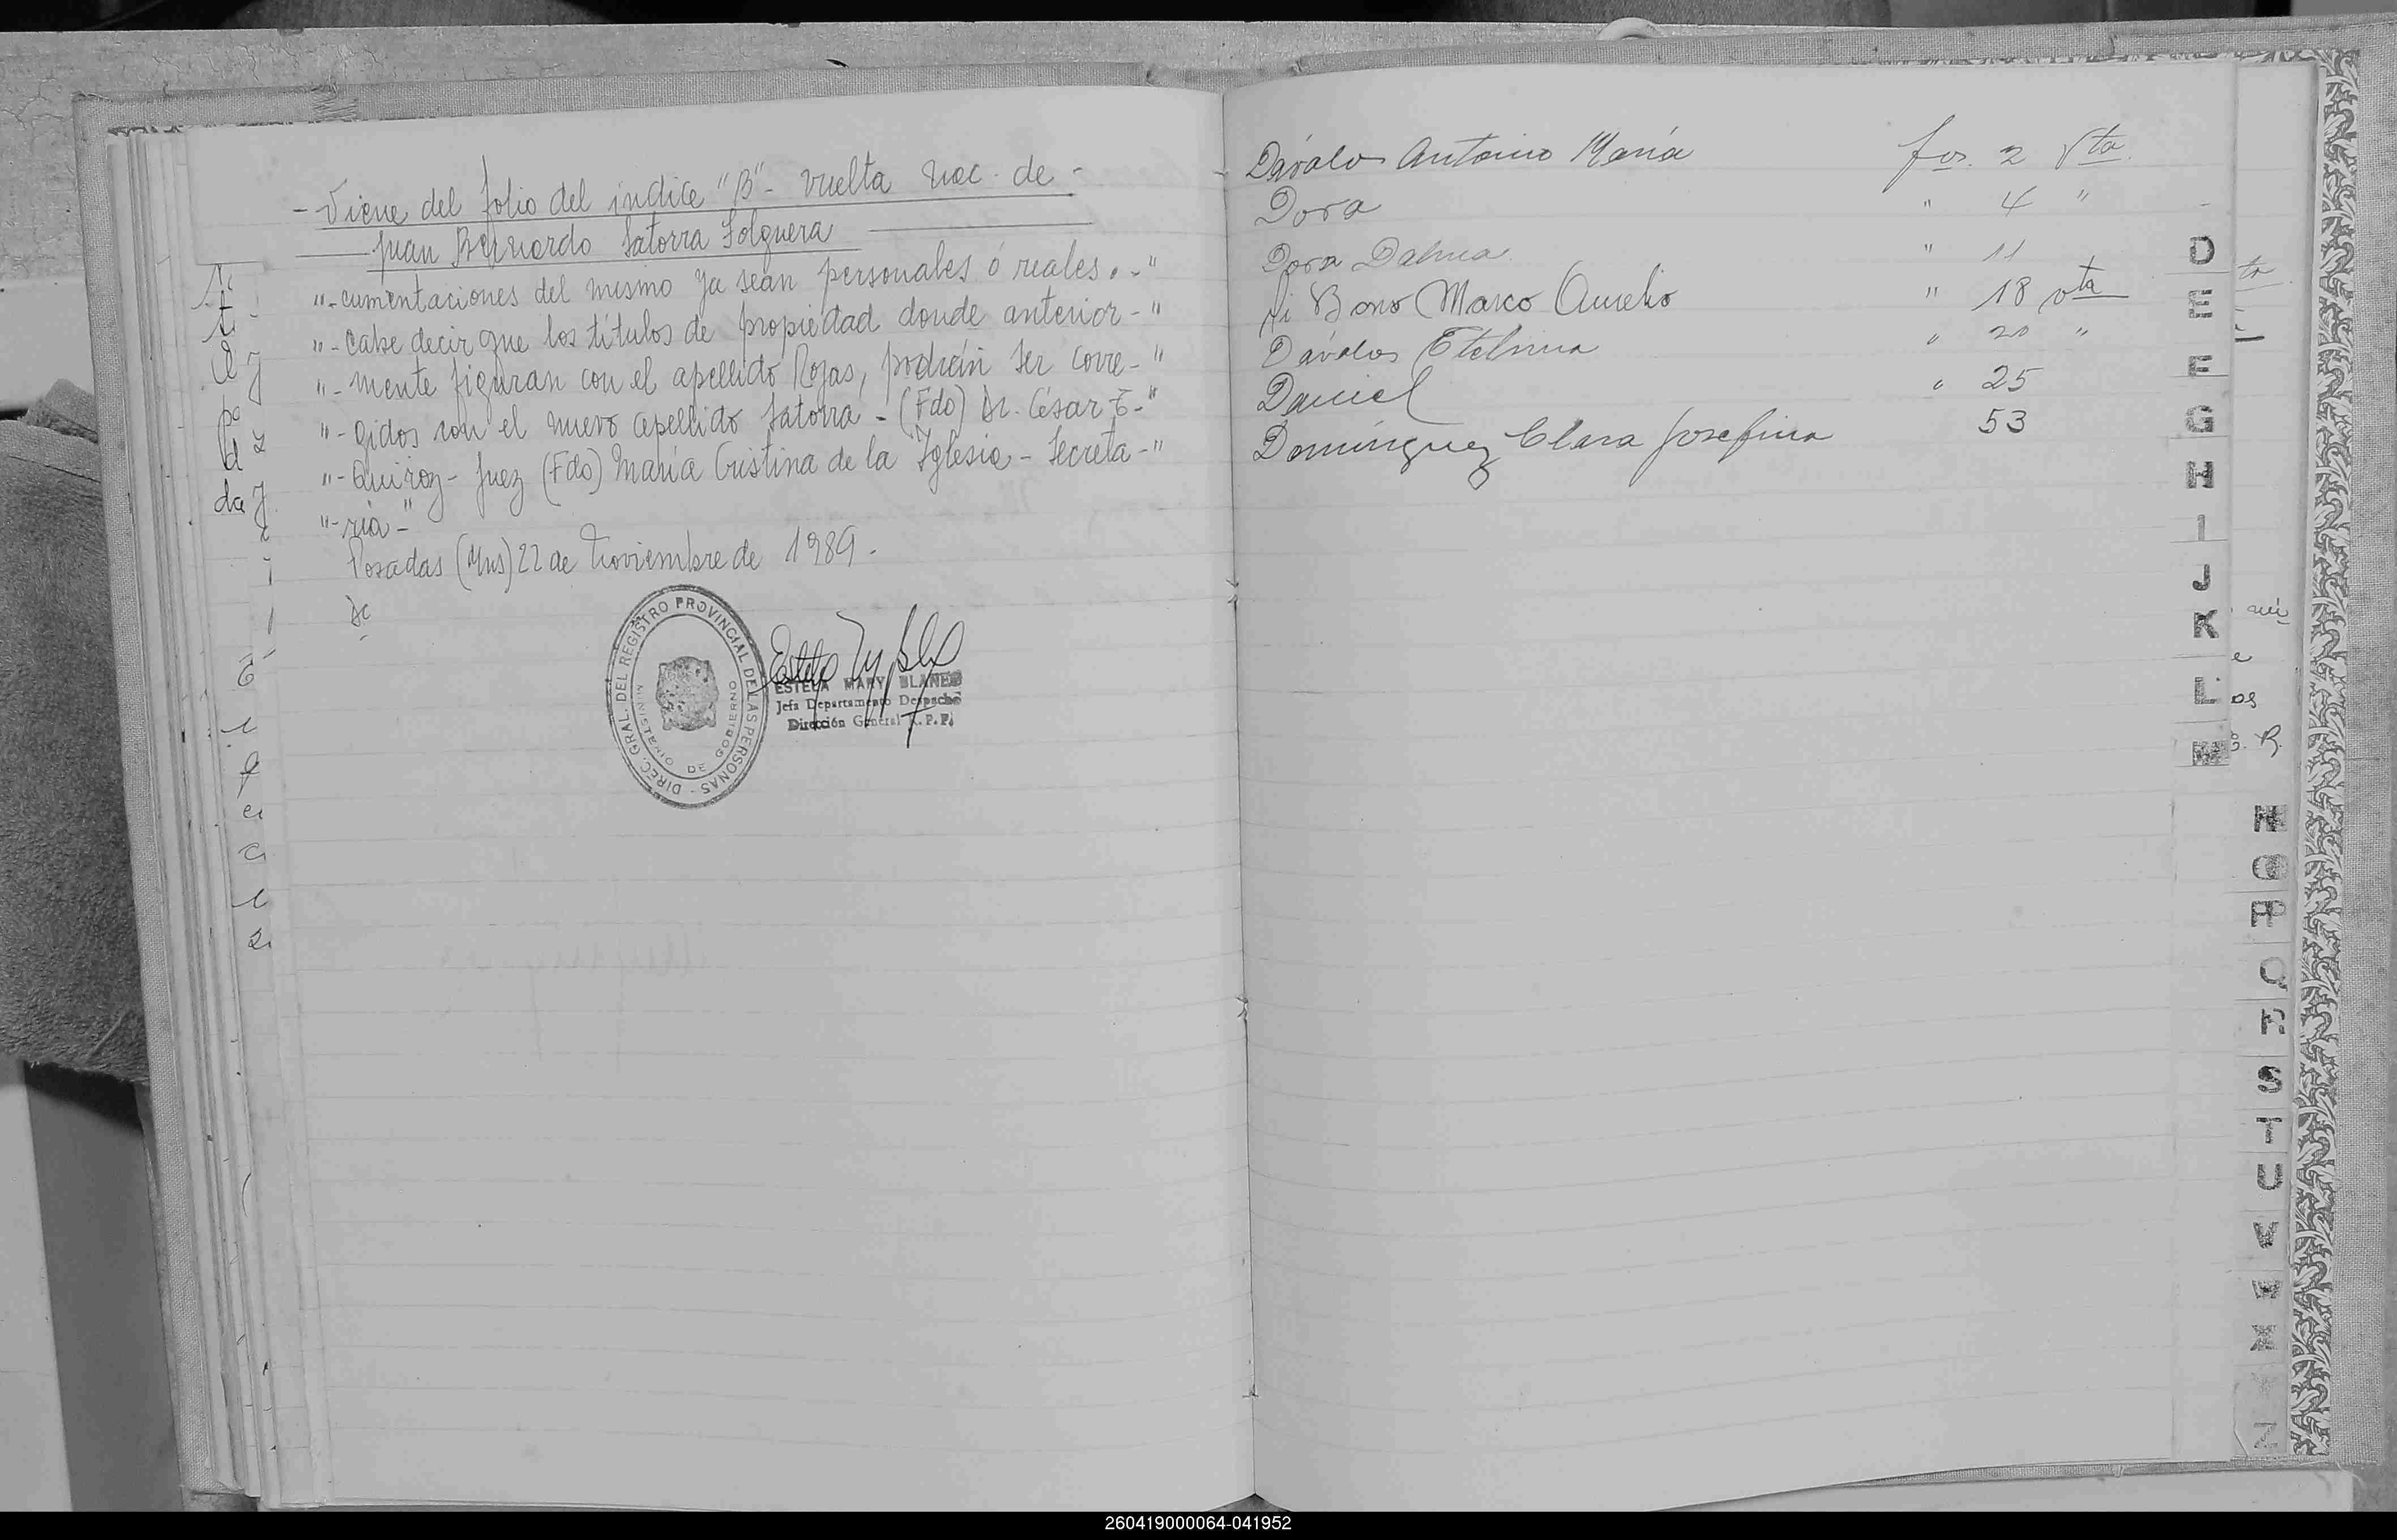 - Viene del folio del indice "B"- vuelta nac. de -
Juan Bernardo Satorra Folguera
"-cumentaciones del mismo ya sean personales ó reales.-"
"- Cabe decir que los títulos de propiedad donde anterior-"
"- mente figuran con el apellido Rojas, podrán ser corre-"
"- gidos con el nuevo apellido Satorra - (Fdo) Dr. César E-"
"- Quiroz - Juez (Fdo) María Cristina de la Iglesia - Secreta-"
"-ria-"
Posadas (Mns) 22 de Noviembre de 1989.
DIREC. GRAL. DEL REGISTRO PROVINCIAL DE LAS PERSONAS -
MINISTERIO DE GOBIERNO
ESTELA MARY BLANES
Jefa Departamento Despacho
Dirección General R. P. P.
Dávalos Antonio María fos. 2 Vta.
Dora " 4 "
Dora Dalma " 11
Di Bono Marco Aurelio " 18 vta
Dávalos Etelvina " 20 "
Daniel " 25
Domínguez Clara Josefina 53
D
E
F
G
H
I
J
K
L
M
N
O
P
Q
R
S
T
U
V
W
X
Y
Z
260419000064-041952